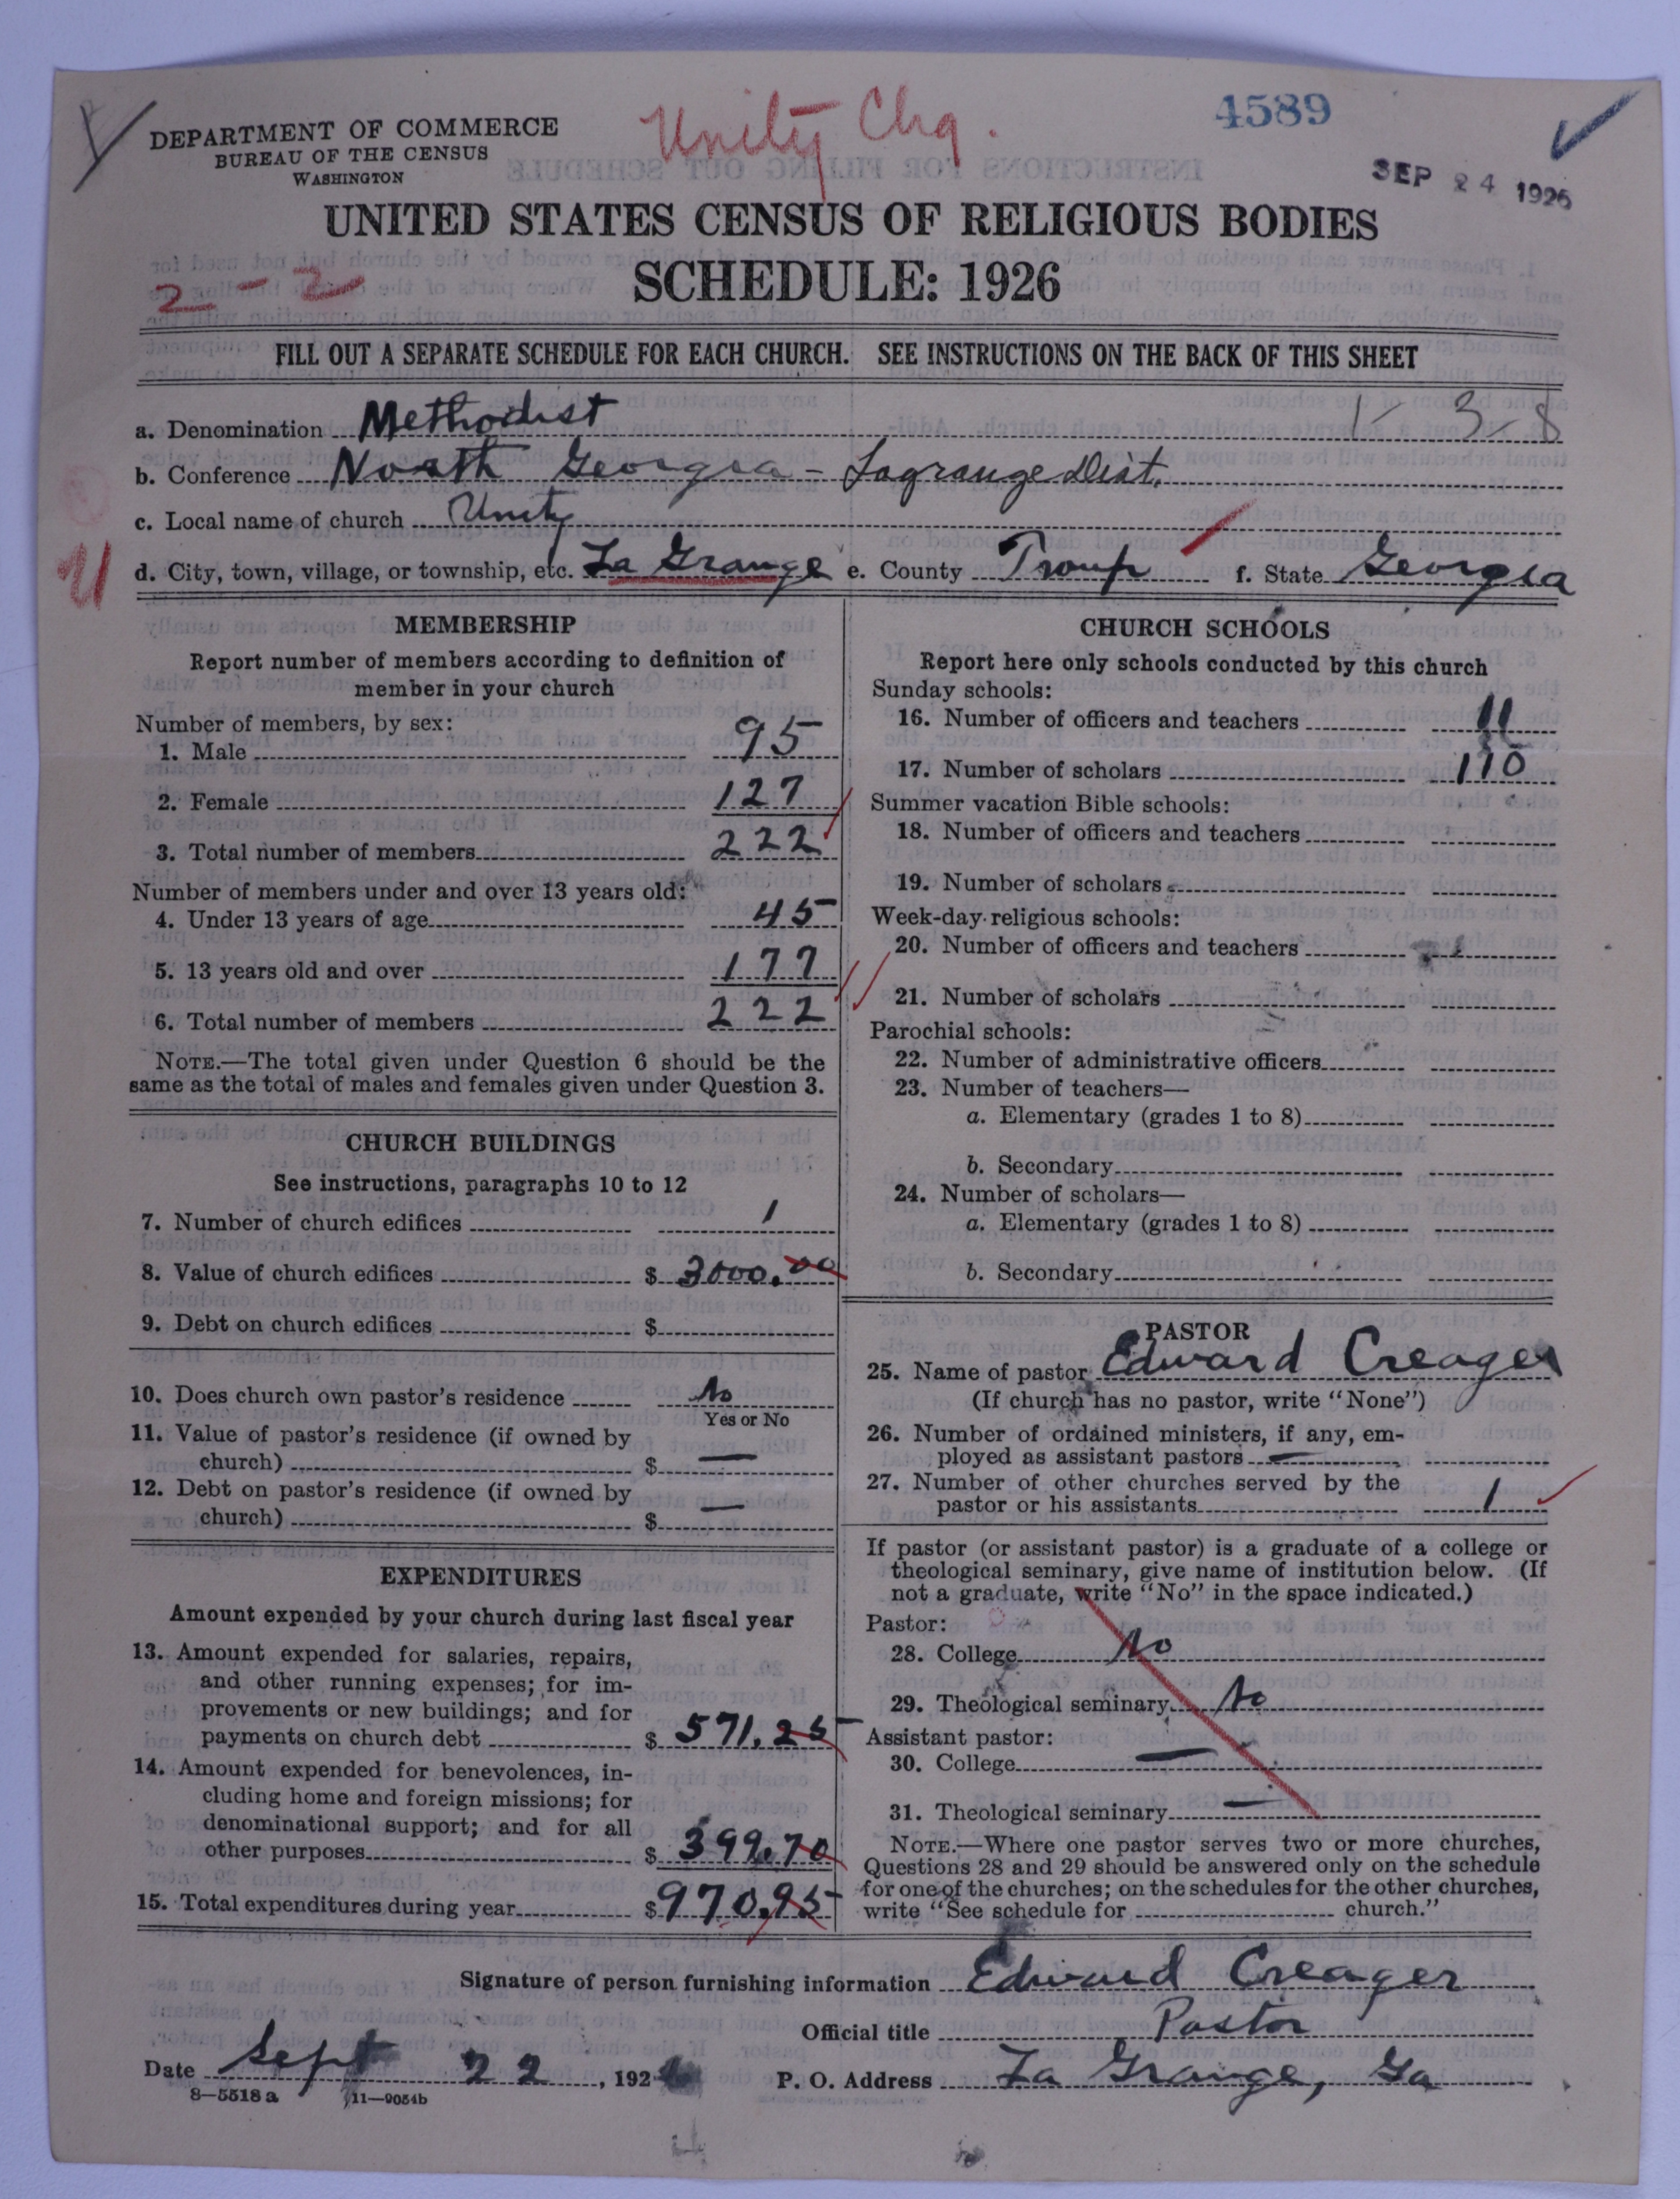 Unity Chg.
4589
DEPARTMENT OF COMMERCE
BUREAU OF THE CENSUS
WASHINGTON
SEP 24 1926
UNITED STATES CENSUS OF RELIGIOUS BODIES
SCHEDULE: 1926
2 - 2
FILL OUT A SEPARATE SCHEDULE FOR EACH CHURCH. SEE INSTRUCTIONS ON THE BACK OF THIS SHEET
a. Denomination Methodist 1-3-8
b. Conference North Georgia - Lagrange Dist.
c. Local name of church Unity
d. City, town, village, or township, etc. La Grange e. County Troup f. State Georgia
MEMBERSHIP
Report number of members according to definition of
member in your church
Number of members, by sex:
1. Male 95
2. Female 127
3. Total number of members 222
Number of members under and over 13 years old:
4. Under 13 years of age 45
5. 13 years old and over 177
6. Total number of members 222
NOTE.—The total given under Question 6 should be the
same as the total of males and females given under Question 3.
CHURCH BUILDINGS
See instructions, paragraphs 10 to 12
7. Number of church edifices 1
8. Value of church edifices $ 3000.00
9. Debt on church edifices $
10. Does church own pastor's residence No
Yes or No
11. Value of pastor's residence (if owned by
church) $ —
12. Debt on pastor's residence (if owned by
church) $ —
EXPENDITURES
Amount expended by your church during last fiscal year
13. Amount expended for salaries, repairs,
and other running expenses; for im-
provements or new buildings; and for
payments on church debt $ 571.25
14. Amount expended for benevolences, in-
cluding home and foreign missions; for
denominational support; and for all
other purposes $ 399.70
15. Total expenditures during year $ 970.95
CHURCH SCHOOLS
Report here only schools conducted by this church
Sunday schools:
16. Number of officers and teachers 11
17. Number of scholars 110
Summer vacation Bible schools:
18. Number of officers and teachers
19. Number of scholars
Week-day religious schools:
20. Number of officers and teachers
21. Number of scholars
Parochial schools:
22. Number of administrative officers
23. Number of teachers—
a. Elementary (grades 1 to 8)
b. Secondary
24. Number of scholars—
a. Elementary (grades 1 to 8)
b. Secondary
PASTOR
25. Name of pastor Edward Creager
(If church has no pastor, write "None")
26. Number of ordained ministers, if any, em-
ployed as assistant pastors —
27. Number of other churches served by the
pastor or his assistants 1
If pastor (or assistant pastor) is a graduate of a college or
theological seminary, give name of institution below. (If
not a graduate, write "No" in the space indicated.)
Pastor:
28. College No
29. Theological seminary No
Assistant pastor:
30. College —
31. Theological seminary —
NOTE.—Where one pastor serves two or more churches,
Questions 28 and 29 should be answered only on the schedule
for one of the churches; on the schedules for the other churches,
write "See schedule for church."
Signature of person furnishing information Edward Creager
Official title Pastor
Date Sept 22, 1926 P. O. Address La Grange, Ga
8—5518 a 11—9054b